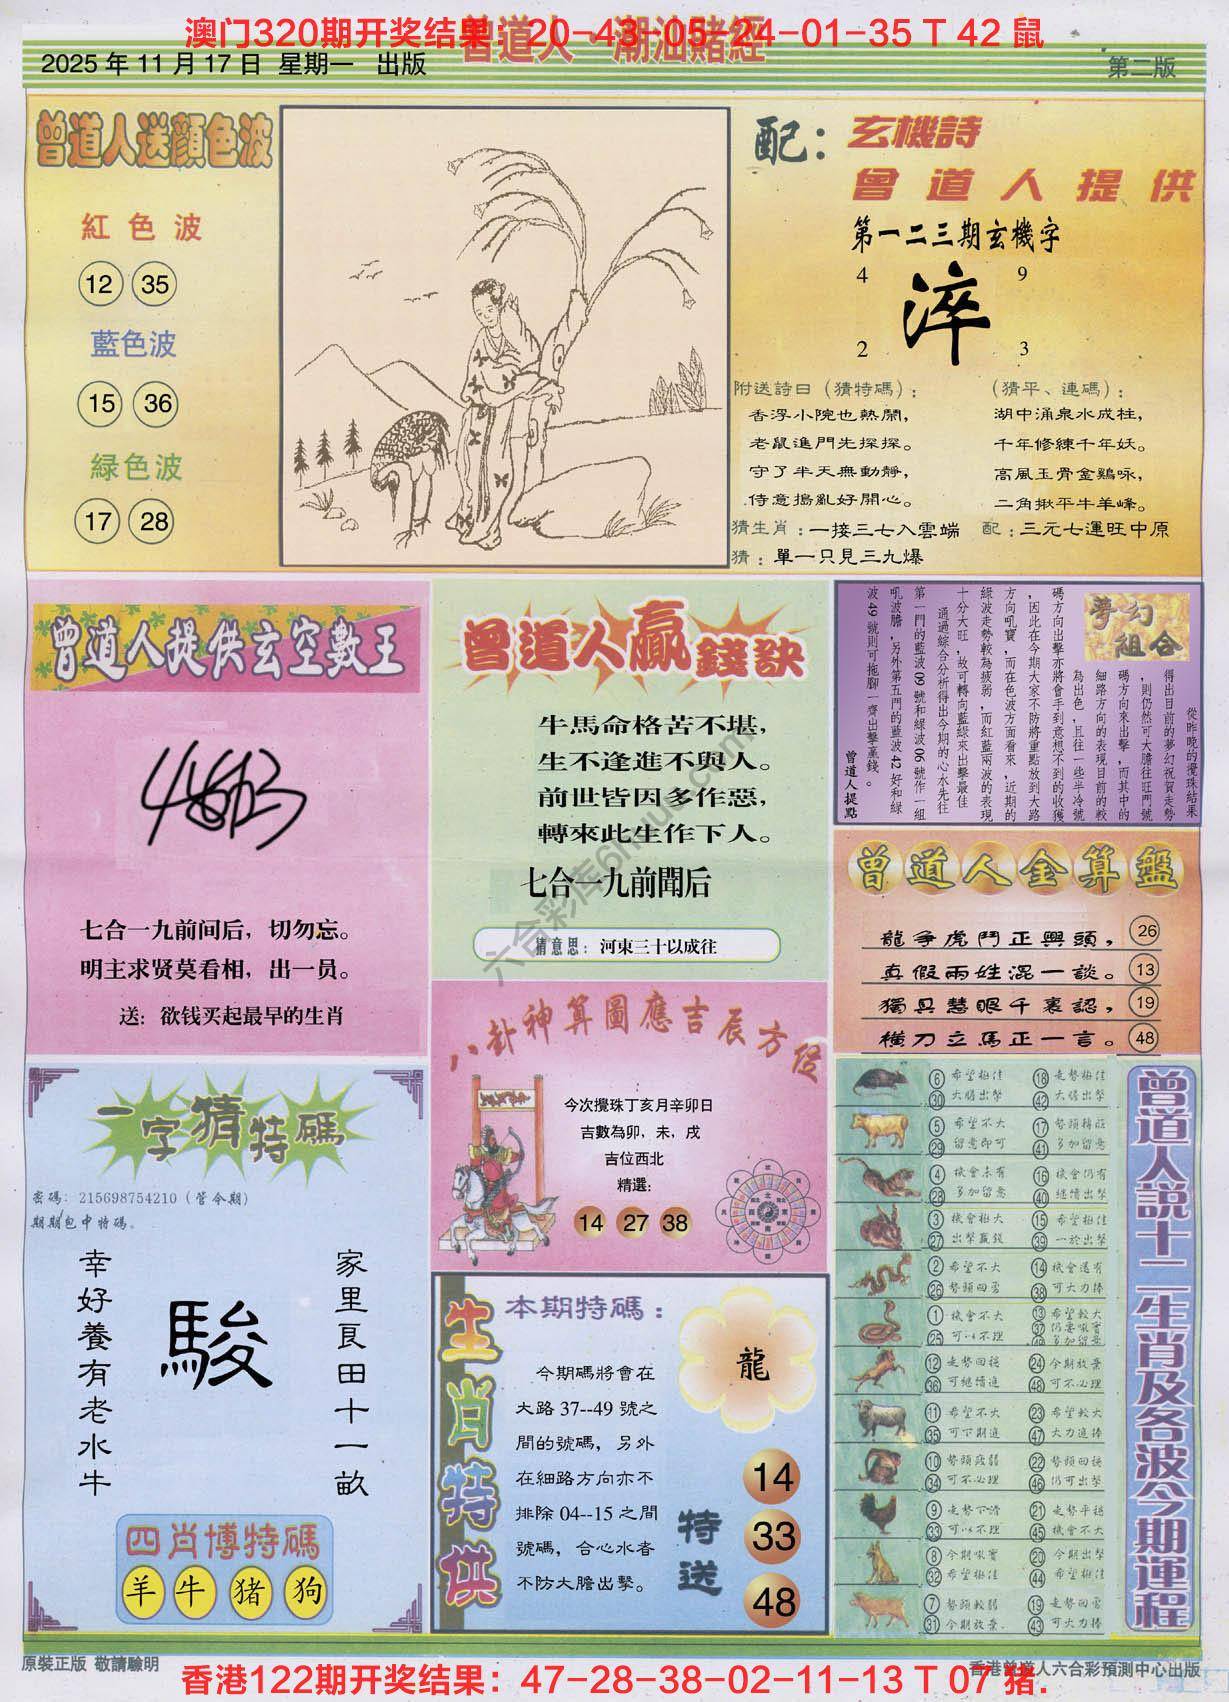 澳门320期开奖结果：20-43-05-24-01-35 T 42 鼠
曾道人·潮汕賭經
2025 年 11 月 17 日 星期一 出版
第二版
曾道人送顏色波
紅色波
12 35
藍色波
15 36
緑色波
17 28
配：玄機詩
曾道人提供
第一二三期玄機字
4 9
淬
2 3
附送詩曰（猜特碼）：
香浮小院也熱鬧，
老鼠進門先探探。
守了半天無動靜，
侍意搗亂好開心。
（猜平、連碼）：
湖中涌泉水成柱，
千年修練千年妖。
高風玉骨金鷄咏，
二角揪平牛羊峰。
猜生肖：一接三七入雲端
配：三元七運旺中原
猜：單一只見三九爆
曾道人提供玄空數王
七合一九前间后，切勿忘。
明主求贤莫看相，出一员。
送：欲钱买起最早的生肖
曾道人贏錢訣
牛馬命格苦不堪，
生不逢進不與人。
前世皆因多作惡，
轉來此生作下人。
七合一九前聞后
猜意思：河東三十以成往
夢幻
組合
從昨晚的攪珠結果
得出目前的夢幻祝賀走勢
，則仍然可大膽往旺門號
碼方向來出擊，而其中的
細路方向的表現目前的較
為出色，且往一些半冷號
碼方向出擊亦將會手到意想不到的收獲
，因此在今期大家不防將重點放到大路
方向吼寶，而在色波方面看來，近期的
綠波走勢較為疲弱，而紅藍兩波的表現
十分大旺，故可轉向藍綠來出擊最佳
通過綜合分析得出今期的心水先往
第一門的藍波09號和綠波06號作一組
吼波膽，另外第五門的藍波42好和綠
波49號則可拖腳一齊出擊贏錢。
曾道人提點
曾道人金算盤
龍争虎鬥正興頭， 26
真假兩姓混一談。 13
獨具慧眼千裏認， 19
橫刀立馬正一言。 48
八卦神算圖應吉辰方位
今次攪珠丁亥月辛卯日
吉數為卯，未，戌
吉位西北
精選：
14 27 38
一字猜特碼
密碼：215698754210（管令期）
期期包中特碼。
家里良田十一畝
駿
幸好養有老水牛
四肖博特碼
羊 牛 猪 狗
生肖特供
本期特碼：
龍
今期碼將會在
大路 37--49 號之
間的號碼，另外
在細路方向亦不
排除 04--15 之間
號碼，合心水者
不防大膽出擊。
特送
14
33
48
曾道人説十二生肖及各波今期運程
6 希望極佳 18 走勢極佳
30 大膽出擊 42 大膽出擊
5 希望不大 17 勢頭轉旺
29 留意即可 41 多加留意
4 機會未有 16 機會仍有
28 多加留意 40 繼續出擊
3 機會極大 15 希望極佳
27 出擊贏錢 39 一於出擊
2 希望不大 14 機會還有
26 勢頭回勇 38 可大力捧
1 機會不大 13 希望較大
37 仍要吼實
25 可以不理 49 多加留意
12 走勢回穩 24 今期放棄
36 可繼續進 48 可不必理
11 希望不大 23 希望較大
35 可下期追 47 大力追捧
10 勢頭疲弱 22 勢頭回穩
34 可不必理 46 仍可出擊
9 走勢下滑 21 走勢平穩
33 可以不理 45 機會不大
8 今期吼實 20 今期出擊
32 希望極佳 44 希望極佳
7 勢頭較弱 19 走勢回勇
31 今期放棄 43 可大力捧
六合彩库6huuu.com
原裝正版 敬請驗明
香港曾道人六合彩預測中心出版
香港122期开奖结果：47-28-38-02-11-13 T 07 猪.